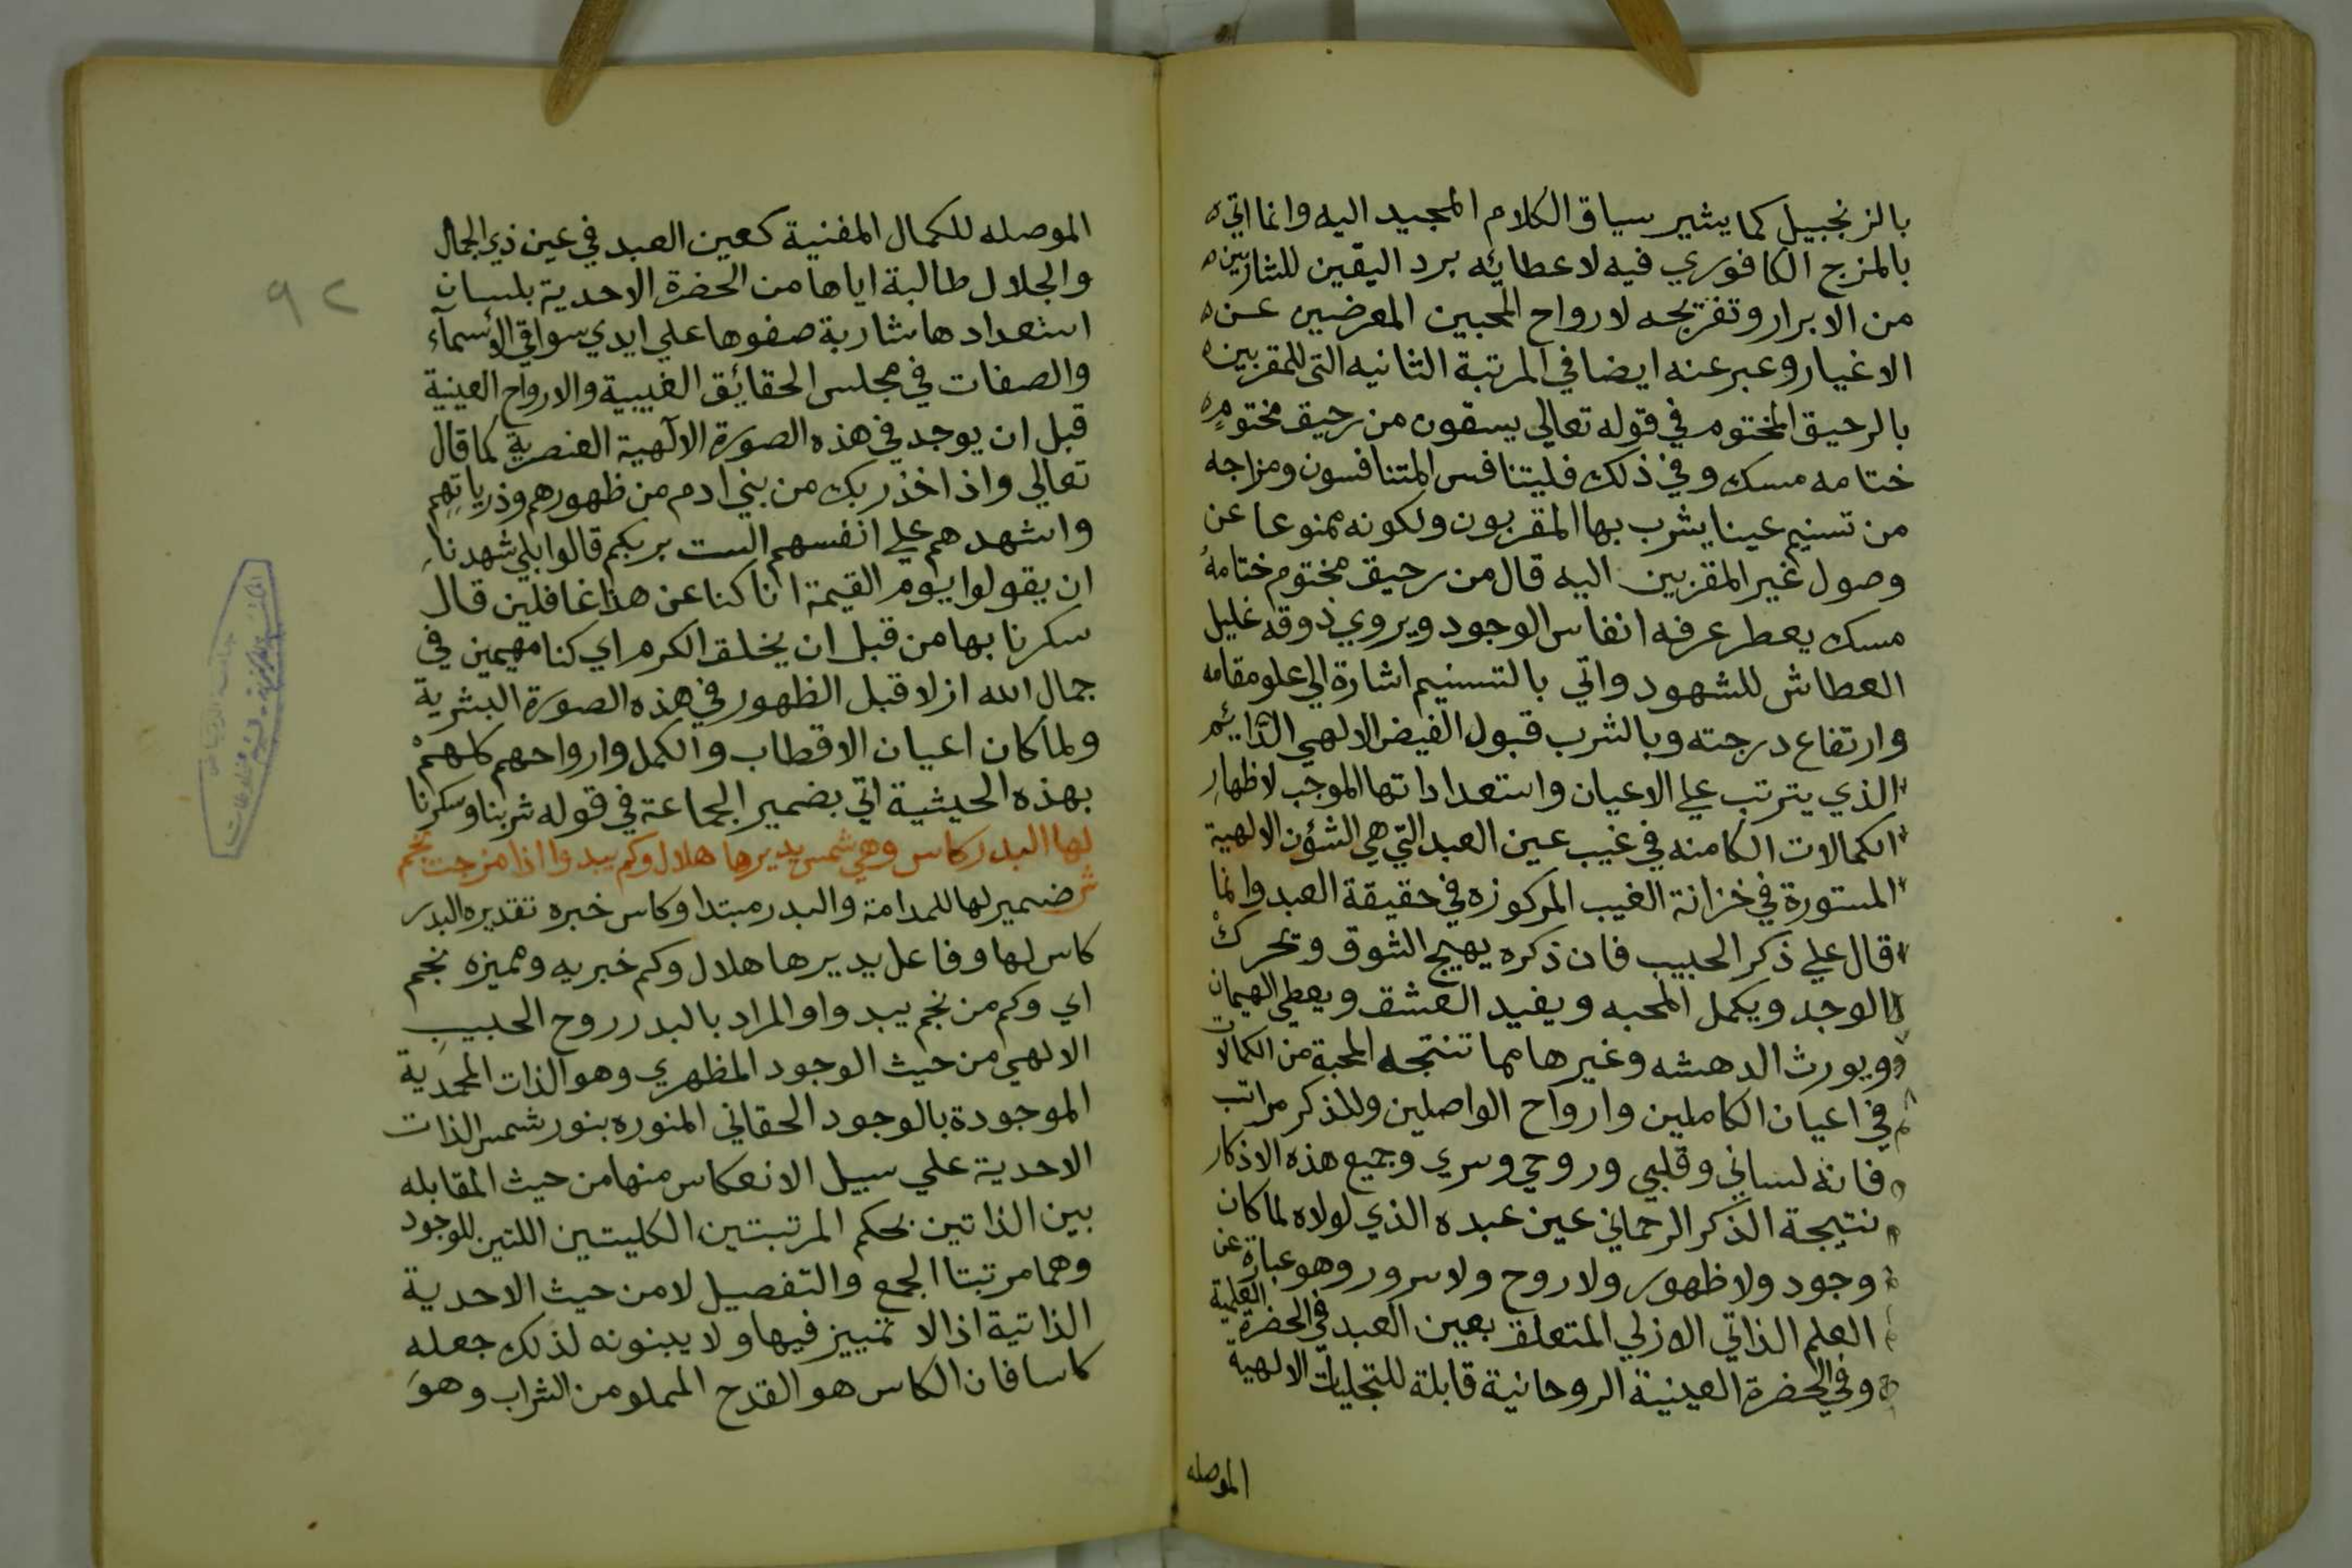 بالزنجبيل كما يشير سياق الكلام المجيد اليه وانما اتي ه
بالمزج الكافوري فيه لاعطائه برد اليقين للشاربين ه
من الابرار وتفريحه لارواح المحبين المعرضين عن ه
الاغيار وعبر عنه ايضا في المرتبة الثانيه التي للمقربين ه
بالرحيق المختوم في قوله تعالي يسقون من رحيق مختومٍ ه
ختامه مسك وفي ذلك فليتنافس المتنافسون ومزاجه
من تسنيم عينا يشرب بها المقربون ولكونه ممنوعا عن
وصول غير المقربين اليه قال من رحيق مختوم ختامهُ
مسك يعطر عرفه انفاس الوجود ويروي ذوقه غليل
العطاش للشهود واتي بالتسنيم اشارة الي علو مقامه
وارتفاع درجته وبالشرب قبول الفيض الالهي الدائم
الذي يترتب علي الاعيان واستعداداتها الموجب لاظهارِ
الكمالات الكامنه في غيب عين العبد التي هي الشؤن الالهية
المستورة في خزانة الغيب المركوزه في حقيقة العبد وانما
قال علي ذكر الحبيب فان ذكره يهيج الشوق وتحرك
الوجد ويكمل المحبه ويفيد العشق ويعطي الهيمان
ويورث الدهشه وغيرها مما تنتجه المحبة من الكمالات
في اعيان الكاملين وارواح الواصلين وللذكر مراتب
فانه لساني وقلبي وروحي وسري وجميع هذه الاذكار
نتيجة الذكر الرحماني عين عبده الذي لولاه لما كان
وجود ولا ظهور ولا روح ولا سرور وهو عبارة عن
العلم الذاتي الازلي المتعلق بعين العبد في الحضرة العلمية
وفي الحضرة العينية الروحانية قابلة للتجليات الالهية
الموصله
٩٢
الموصله للكمال المفنية كعين العبد في عين ذي الجمال
والجلال طالبة اياها من الحضرة الاحدية بلسان
استعدادها شاربة صفوها علي ايدي سواقي الاسمآء
والصفات في مجلس الحقايق الغيبية والارواح العينية
قبل ان يوجد في هذه الصورة الآلهية العنصرية كما قال
تعالي واذ اخذ ربك من بني ادم من ظهورهم وذرياتِهِم
واشهدهم علي انفسهم الست بربكم قالوا بلي شهدنا
ان يقولوا يوم القيمة انا كنا عن هذا غافلين قال
سكرنا بها من قبل ان يخلق الكرم اي كنا مهيمين في
جمال الله ازلا قبل الظهور في هذه الصورة البشرية
ولما كان اعيان الاقطاب والكمل وارواحهم كلهمْ
بهذه الحيثية اتي بضمير الجماعة في قوله شربنا وسكرنا
لها البدر كاس وهي شمس يديرها هلال وكم يبدوا اذا مزجت نجم
ش ضمير لها للمدامة والبدر مبتدا وكاس خبره تقديره البدر
كاس لها وفاعل يديرها هلال وكم خبريه ومميزه نجم
اي وكم من نجم يبدوا والمراد بالبدر روح الحبيبِ
الالهي من حيث الوجود المظهري وهو الذات المحمدية
الموجودة بالوجود الحقاني المنوره بنور شمس الذات
الاحدية علي سبيل الانعكاس منها من حيث المقابله
بين الذاتين بحكم المرتبتين الكليتين اللتين للوجود
وهما مرتبتا الجمع والتفصيل لا من حيث الاحدية
الذاتية اذ الا تمييز فيها ولا يبنونه لذلك جعله
كاسا فان الكاس هو القدح المملو من الشراب وهوَ